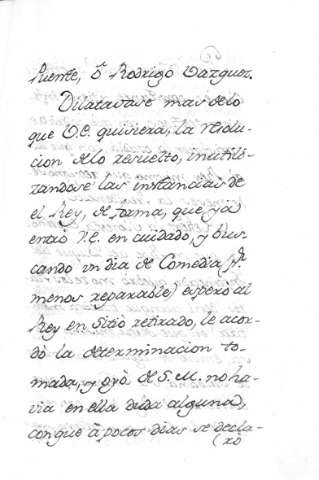 Puente, ò Rodrigo Vazquez.
Dilatavase mas delo
que V.E. quisiera, la resolu-
cion delo resuelto, inutili-
zandose las instancias de
el Rey, de forma, que yà
entrò V.E. en cuidado, y bus
cando un dia de Comedia (pr.
menos reparable) esperò al
Rey en Sitio retirado, le acor-
dò la determinacion to-
mada, y oyò de S.M. no ha-
via en ella duda alguna,
conque à pocos dias se decla-
(rò